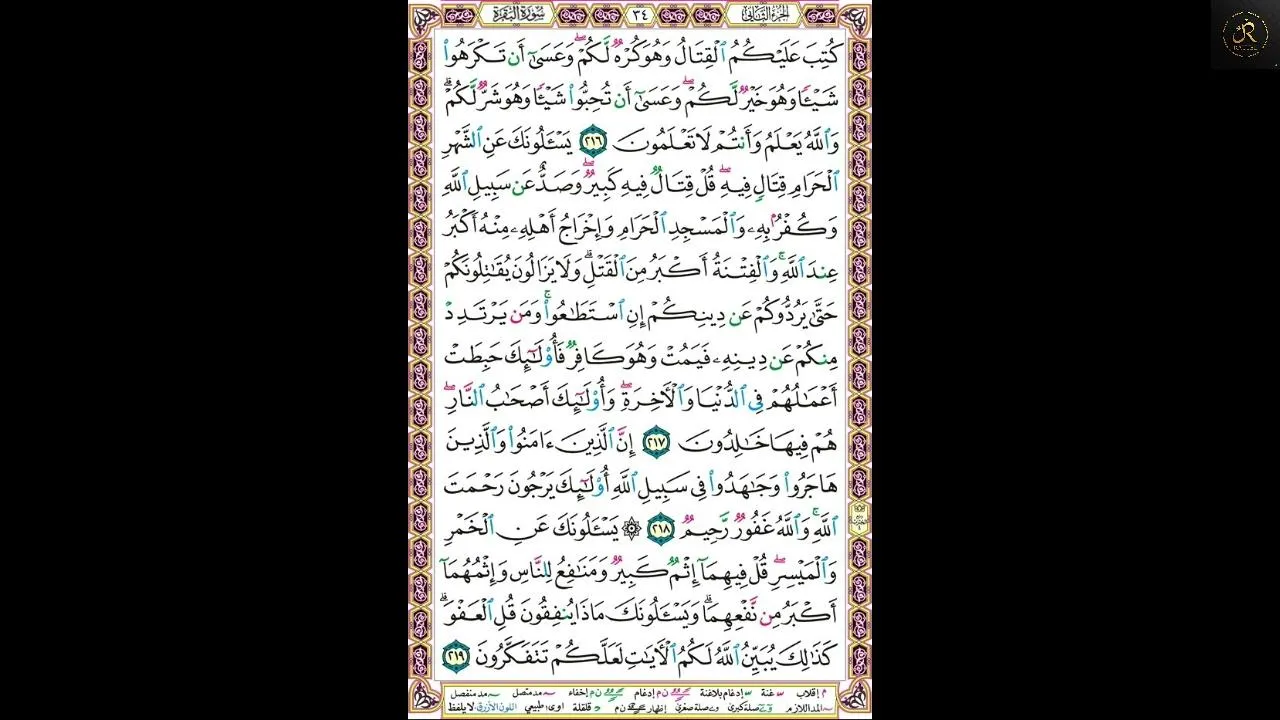 الجزء الثاني
٣٤
سورة البقرة
كُتِبَ عَلَيْكُمُ ٱلْقِتَالُ وَهُوَ كُرْهٌ لَّكُمْ ۖ وَعَسَىٰٓ أَن تَكْرَهُوا۟
شَيْـًٔا وَهُوَ خَيْرٌ لَّكُمْ ۖ وَعَسَىٰٓ أَن تُحِبُّوا۟ شَيْـًٔا وَهُوَ شَرٌّ لَّكُمْ ۗ
وَٱللَّهُ يَعْلَمُ وَأَنتُمْ لَا تَعْلَمُونَ ٢١٦ يَسْـَٔلُونَكَ عَنِ ٱلشَّهْرِ
ٱلْحَرَامِ قِتَالٍ فِيهِ ۖ قُلْ قِتَالٌ فِيهِ كَبِيرٌ ۖ وَصَدٌّ عَن سَبِيلِ ٱللَّهِ
وَكُفْرٌۢ بِهِۦ وَٱلْمَسْجِدِ ٱلْحَرَامِ وَإِخْرَاجُ أَهْلِهِۦ مِنْهُ أَكْبَرُ
عِندَ ٱللَّهِ ۚ وَٱلْفِتْنَةُ أَكْبَرُ مِنَ ٱلْقَتْلِ ۗ وَلَا يَزَالُونَ يُقَـٰتِلُونَكُمْ
حَتَّىٰ يَرُدُّوكُمْ عَن دِينِكُمْ إِنِ ٱسْتَطَـٰعُوا۟ ۚ وَمَن يَرْتَدِدْ
مِنكُمْ عَن دِينِهِۦ فَيَمُتْ وَهُوَ كَافِرٌ فَأُو۟لَـٰٓئِكَ حَبِطَتْ
أَعْمَـٰلُهُمْ فِى ٱلدُّنْيَا وَٱلْـَٔاخِرَةِ ۖ وَأُو۟لَـٰٓئِكَ أَصْحَـٰبُ ٱلنَّارِ ۖ
هُمْ فِيهَا خَـٰلِدُونَ ٢١٧ إِنَّ ٱلَّذِينَ ءَامَنُوا۟ وَٱلَّذِينَ
هَاجَرُوا۟ وَجَـٰهَدُوا۟ فِى سَبِيلِ ٱللَّهِ أُو۟لَـٰٓئِكَ يَرْجُونَ رَحْمَتَ
ٱللَّهِ ۚ وَٱللَّهُ غَفُورٌ رَّحِيمٌ ٢١٨ ۞ يَسْـَٔلُونَكَ عَنِ ٱلْخَمْرِ
وَٱلْمَيْسِرِ ۖ قُلْ فِيهِمَآ إِثْمٌ كَبِيرٌ وَمَنَـٰفِعُ لِلنَّاسِ وَإِثْمُهُمَآ
أَكْبَرُ مِن نَّفْعِهِمَا ۗ وَيَسْـَٔلُونَكَ مَاذَا يُنفِقُونَ قُلِ ٱلْعَفْوَ ۗ
كَذَٰلِكَ يُبَيِّنُ ٱللَّهُ لَكُمُ ٱلْـَٔايَـٰتِ لَعَلَّكُمْ تَتَفَكَّرُونَ ٢١٩
م إقلاب غنة إدغام بلاغنة ن م إدغام ن م إخفاء مد متصل مد منفصل
المد اللازم صلة كبرى صلة صغرى إظهار ن م قلقلة اوى: طبيعي اللون الأزرق لا يلفظ